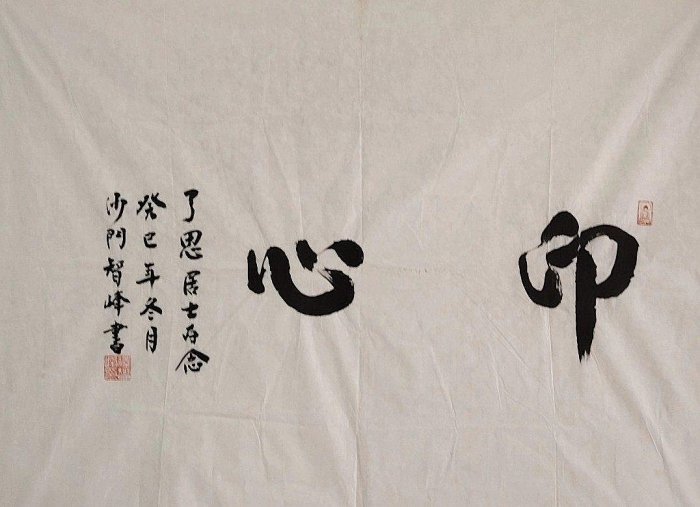 印心
了思居士存念
癸巳年冬月
沙門智峰書